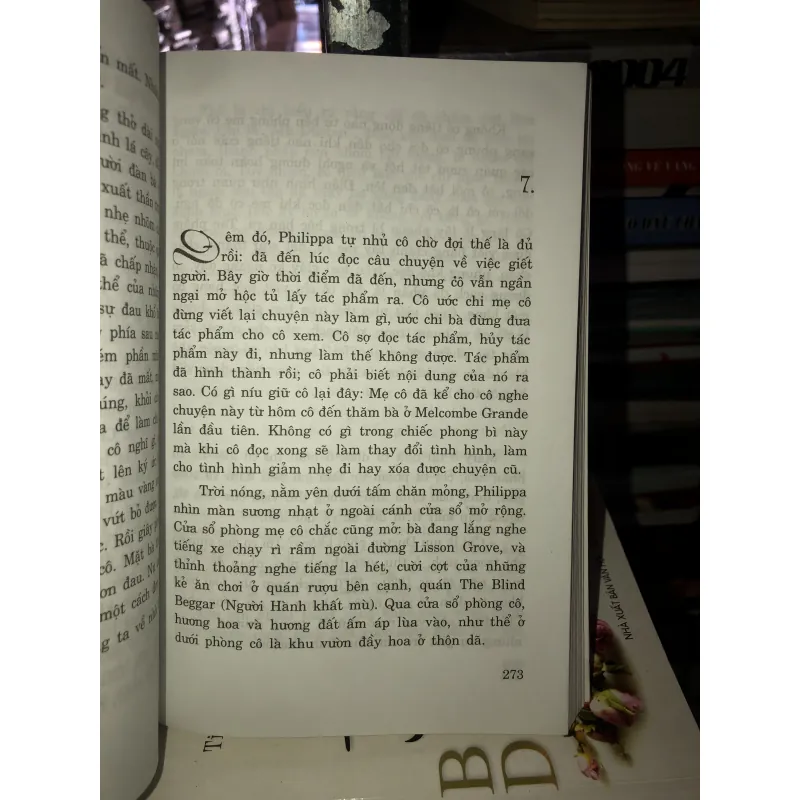 n mất.
7.
Đêm đó, Philippa tự nhủ cô chờ đợi thế là đủ
rồi: đã đến lúc đọc câu chuyện về việc giết
người. Bây giờ thời điểm đã đến, nhưng cô vẫn ngần
ngại mở hộc tủ lấy tác phẩm ra. Cô ước chi mẹ cô
đừng viết lại chuyện này làm gì, ước chi bà đừng đưa
tác phẩm cho cô xem. Cô sợ đọc tác phẩm, hủy tác
phẩm này đi, nhưng làm thế không được. Tác phẩm
đã hình thành rồi; cô phải biết nội dung của nó ra
sao. Có gì níu giữ cô lại đây: Mẹ cô đã kể cho cô nghe
chuyện này từ hôm cô đến thăm bà ở Melcombe Grande
lần đầu tiên. Không có gì trong chiếc phong bì này
mà khi cô đọc xong sẽ làm thay đổi tình hình, làm
cho tình hình giảm nhẹ đi hay xóa được chuyện cũ.
Trời nóng, nằm yên dưới tấm chăn mỏng, Philippa
nhìn màn sương nhạt ở ngoài cánh cửa sổ mở rộng.
Cửa sổ phòng mẹ cô chắc cũng mở: bà đang lắng nghe
tiếng xe chạy rì rầm ngoài đường Lisson Grove, và
thỉnh thoảng nghe tiếng la hét, cười cợt của những
kẻ ăn chơi ở quán rượu bên cạnh, quán The Blind
Beggar (Người Hành khất mù). Qua cửa sổ phòng cô,
hương hoa và hương đất ấm áp lùa vào, như thể ở
dưới phòng cô là khu vườn đầy hoa ở thôn dã.
273
g thở dài
nh lá cây,
ười đàn bà
xuất thần
nhẹ nhõm
thể, thuộc
ã chấp nhận
hể của
sự đau khổ
phía sau
ém phần
ay đã mất
úng, khỏi
a để làm
cô nghĩ gì
t lên ký
màu vàng
vứt bỏ
c. Rồi giây
cô. Mặt bà
ơn đau.
một cách
g ta về
2004
NHÀ XUẤT BẢN VĂN
B
D